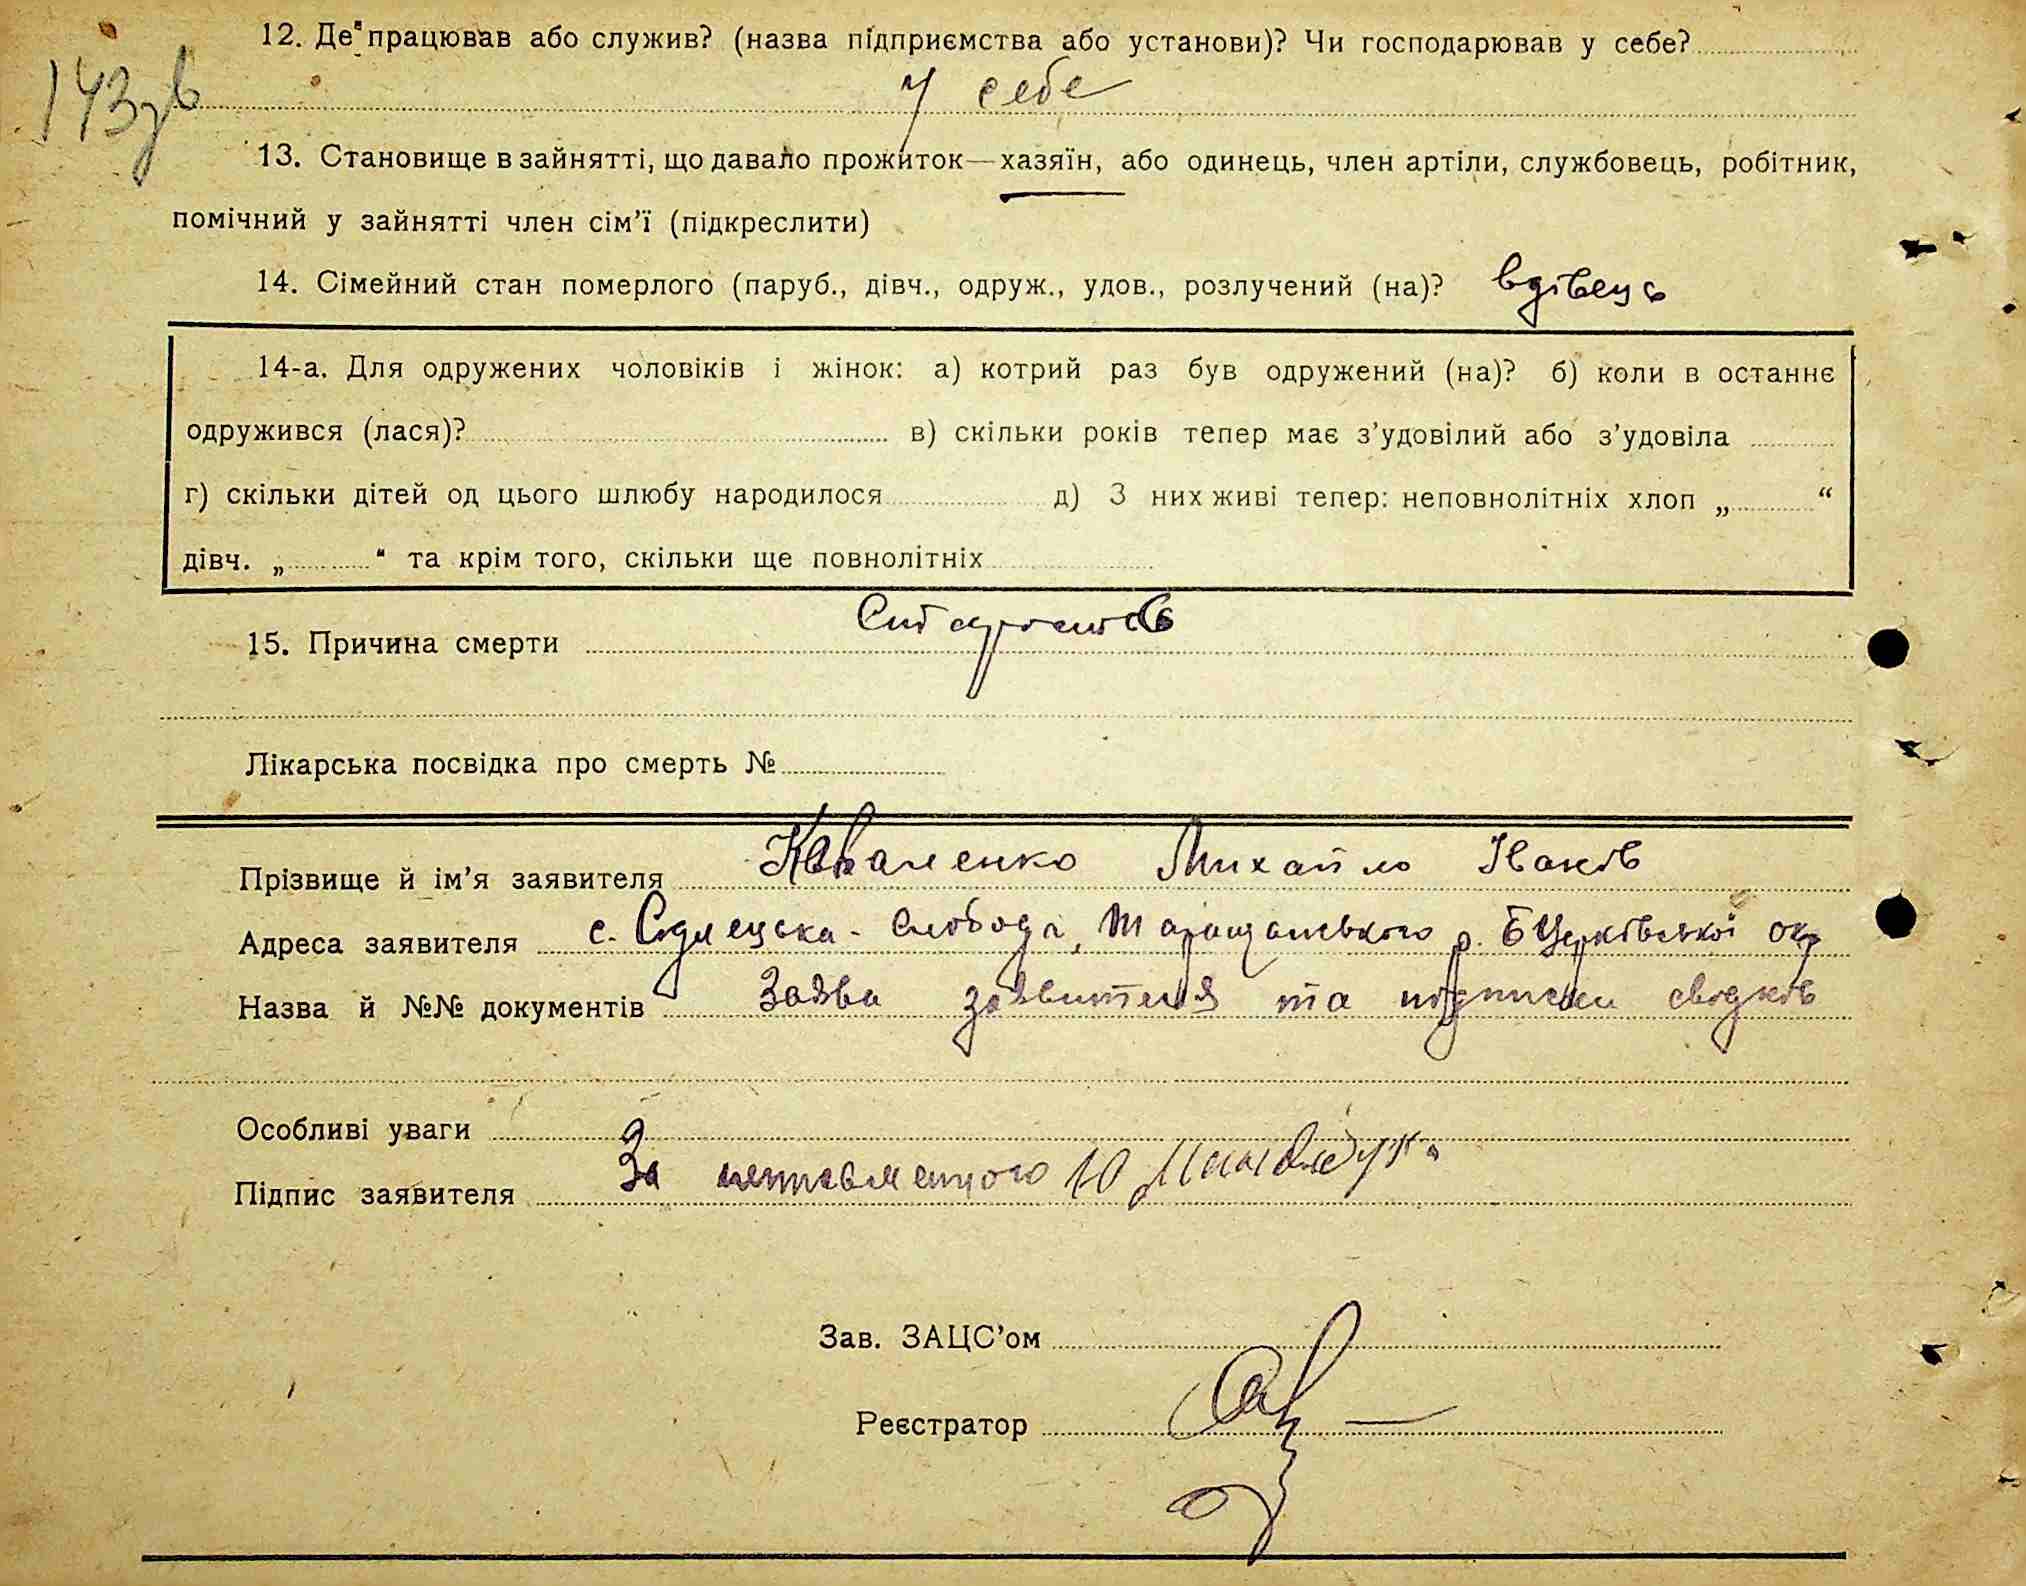 12. Де працював або служив? (назва підприємства або установи)? Чи господарював у себе?
143 зв
у себе
13. Становище в зайнятті, що давало прожиток—хазяїн, або одинець, член артіли, службовець, робітник,
помічний у зайнятті член сім’ї (підкреслити)
14. Сімейний стан померлого (паруб., дівч., одруж., удов., розлучений (на)? вдівець
14-а. Для одружених чоловіків і жінок: а) котрий раз був одружений (на)? б) коли в останнє
одружився (лася)? в) скільки років тепер має з’удовілий або з’удовіла
г) скільки дітей од цього шлюбу народилося д) З них живі тепер: неповнолітніх хлоп „ “
дівч. „ “ та крім того, скільки ще повнолітніх
15. Причина смерти
Лікарська посвідка про смерть №
Прізвище й ім’я заявителя Коваленко Михайло
Адреса заявителя с. Слобода, Таращанського р. БЦерківської окр
Назва й №№ документів Заява заявителя та підписки свідків
Особливі уваги
Підпис заявителя За неписьменного
Зав. ЗАЦС’ом
Реєстратор